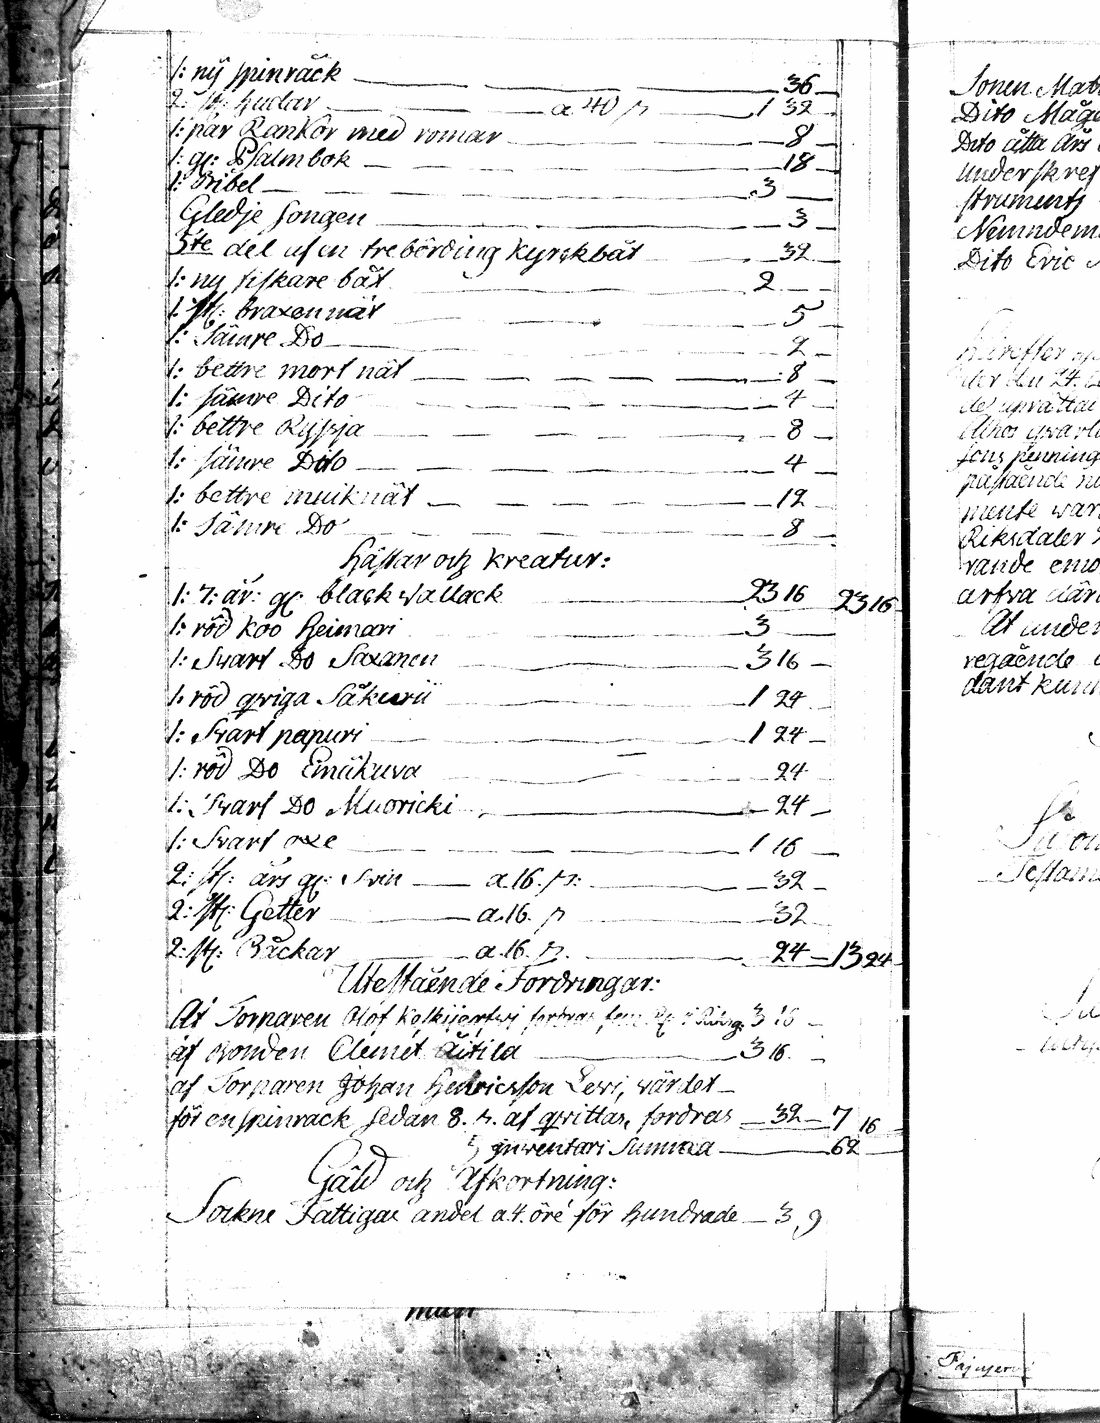 1: ny spinråck 36
2: st: hudar a 40 s 1 32
1: par Rankor med romar 8
1: gl: Psalmbok 18
1: Bibel 3
Gledje songen 3
5te del uf en trebörding kyrckbåt 32
1: ny fiskare båt 2
1: st: braxen nät 5
1: Sämre Do 2
1: bettre mort nät 8
1: sämre Dito 4
1: bettre Rysja 8
1: sämre Dito 4
1: bettre muiknät 12
1: Sämre Do 8
Hästar och kreatur:
1: 7: år: gl: black wallack 23 16 23 16
1: röd koo Heimari 3
1: Svart Do Saxanen 3 16
1: röd qviga Säkerii 1 24
1: Svart papuri 1 24
1: röd Do Emikuva 24
1: Svart Do Muoricki 24
1: Svart oxe 1 16
2: st: års gl: Svin a. 16. s: 32
2: st: Getter a. 16. s 32
2: st: Båckar a. 16. s. 24 13 24
Utestående Fordringar:
Af Torparen Olof fordras 3 16
af bonden Clemet Äitilä 3 16.
af Torparen Johan Henricsson Levi, värdet
för en spinrack sedan 8. s. äf qvittas, fordras 32 7 16
inventari Summa 62
Gäld och Afkortning:
Sockne Fattigas andel a 4. öre för hundrade 3, 9
Sonen Mat
Dito Måg
Dito åtta års
underskref
struments
Nemndem
Dito Eric
Härefter
der den 24.
del uprättat
sons penning
påstående
mente war
Riksdaler
rande emo
arfva där
At under
regående
dant kun
Testam